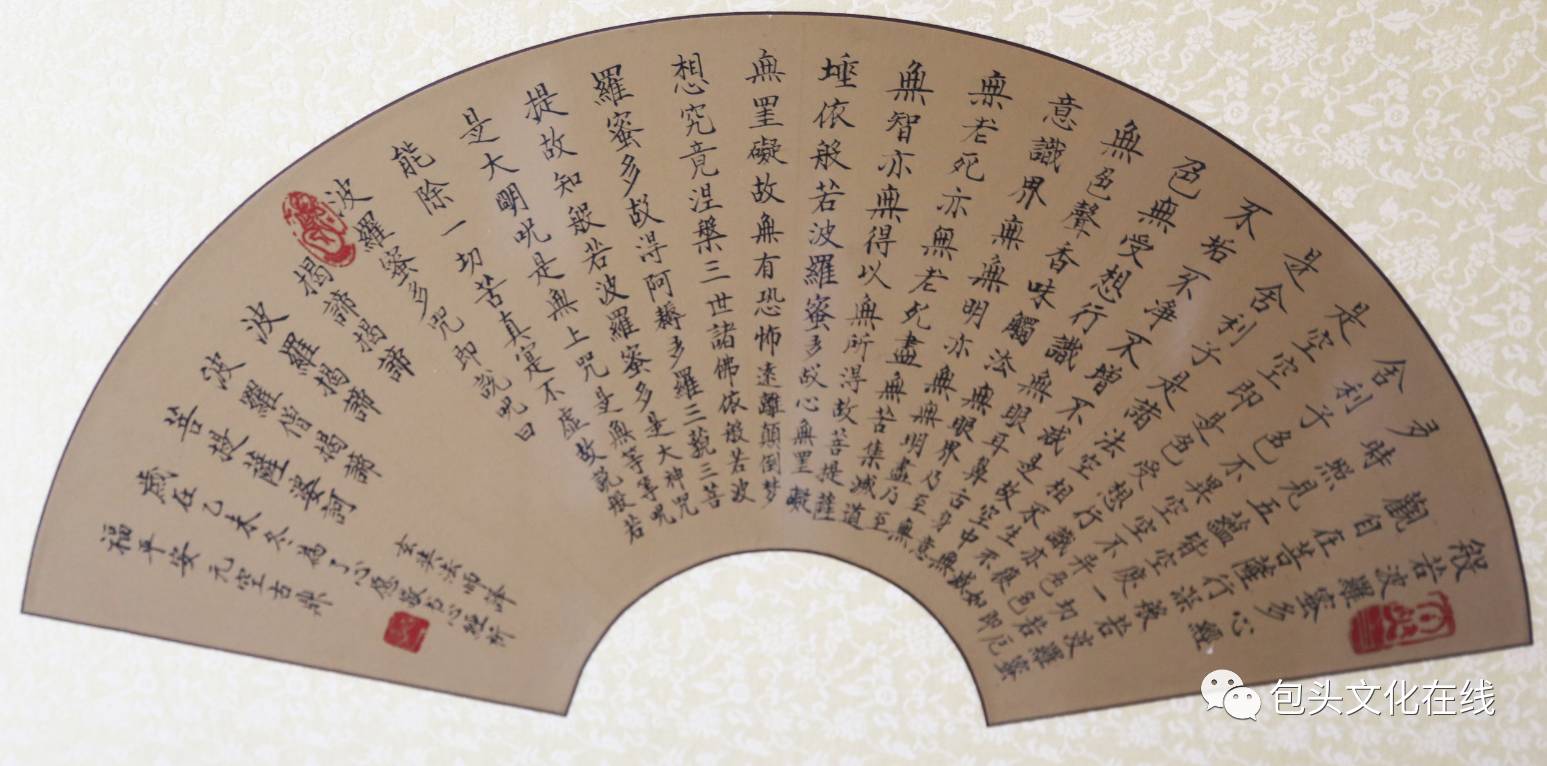 般若波羅蜜多心經
觀自在菩薩行深般若波羅蜜
多時照見五蘊皆空度一切苦厄
舍利子色不異空空不異色色即
是空空即是色受想行識亦復如
是舍利子是諸法空相不生不滅
不垢不淨不增不減是故空中無
色無受想行識無眼耳鼻舌身意
無色聲香味觸法無眼界乃至無
意識界無無明亦無無明盡乃至
無老死亦無老死盡無苦集滅道
無智亦無得以無所得故菩提薩
埵依般若波羅蜜多故心無罣礙
無罣礙故無有恐怖遠離顛倒梦
想究竟涅槃三世諸佛依般若波
羅蜜多故得阿耨多羅三藐三菩
提故知般若波羅蜜多是大神咒
是大明咒是無上咒是無等等咒
能除一切苦真實不虛故說般若
波羅蜜多咒即說咒曰
揭諦揭諦
波羅揭諦
波羅僧揭諦
菩提薩婆訶
玄奘法師譯
歲在乙未冬為了心愿敬書心經祈
福平安 元空古典
包头文化在线